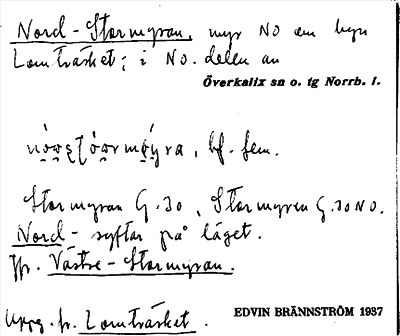 Nord-Stormyran, myr NO om byn
Lomträsket; i NO. delen av
Överkalix sn o. tg Norrb. l.
bf. fem.
Stormyran G.30, Stormyren G.30 NO.
Nord- syftar på läget.
Jfr. Västre-Stormyran.
Uppg. fr. Lomträsket.
EDVIN BRÄNNSTRÖM 1937